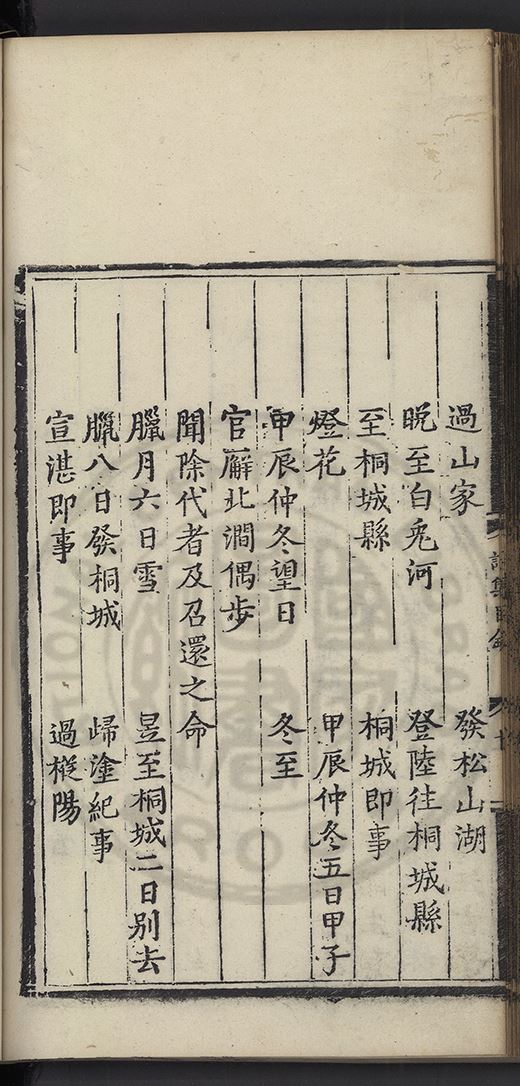 過山家 發松山湖
晚至白兎河 登陸往桐城縣
至桐城縣 桐城即事
燈花 甲辰仲冬五日甲子
甲辰仲冬望日 冬至
官廨北澗偶步
聞除代者及召還之命
臘月六日雪 昱至桐城二日別去
臘八日發桐城 歸塗紀事
宣湛即事 過樅陽